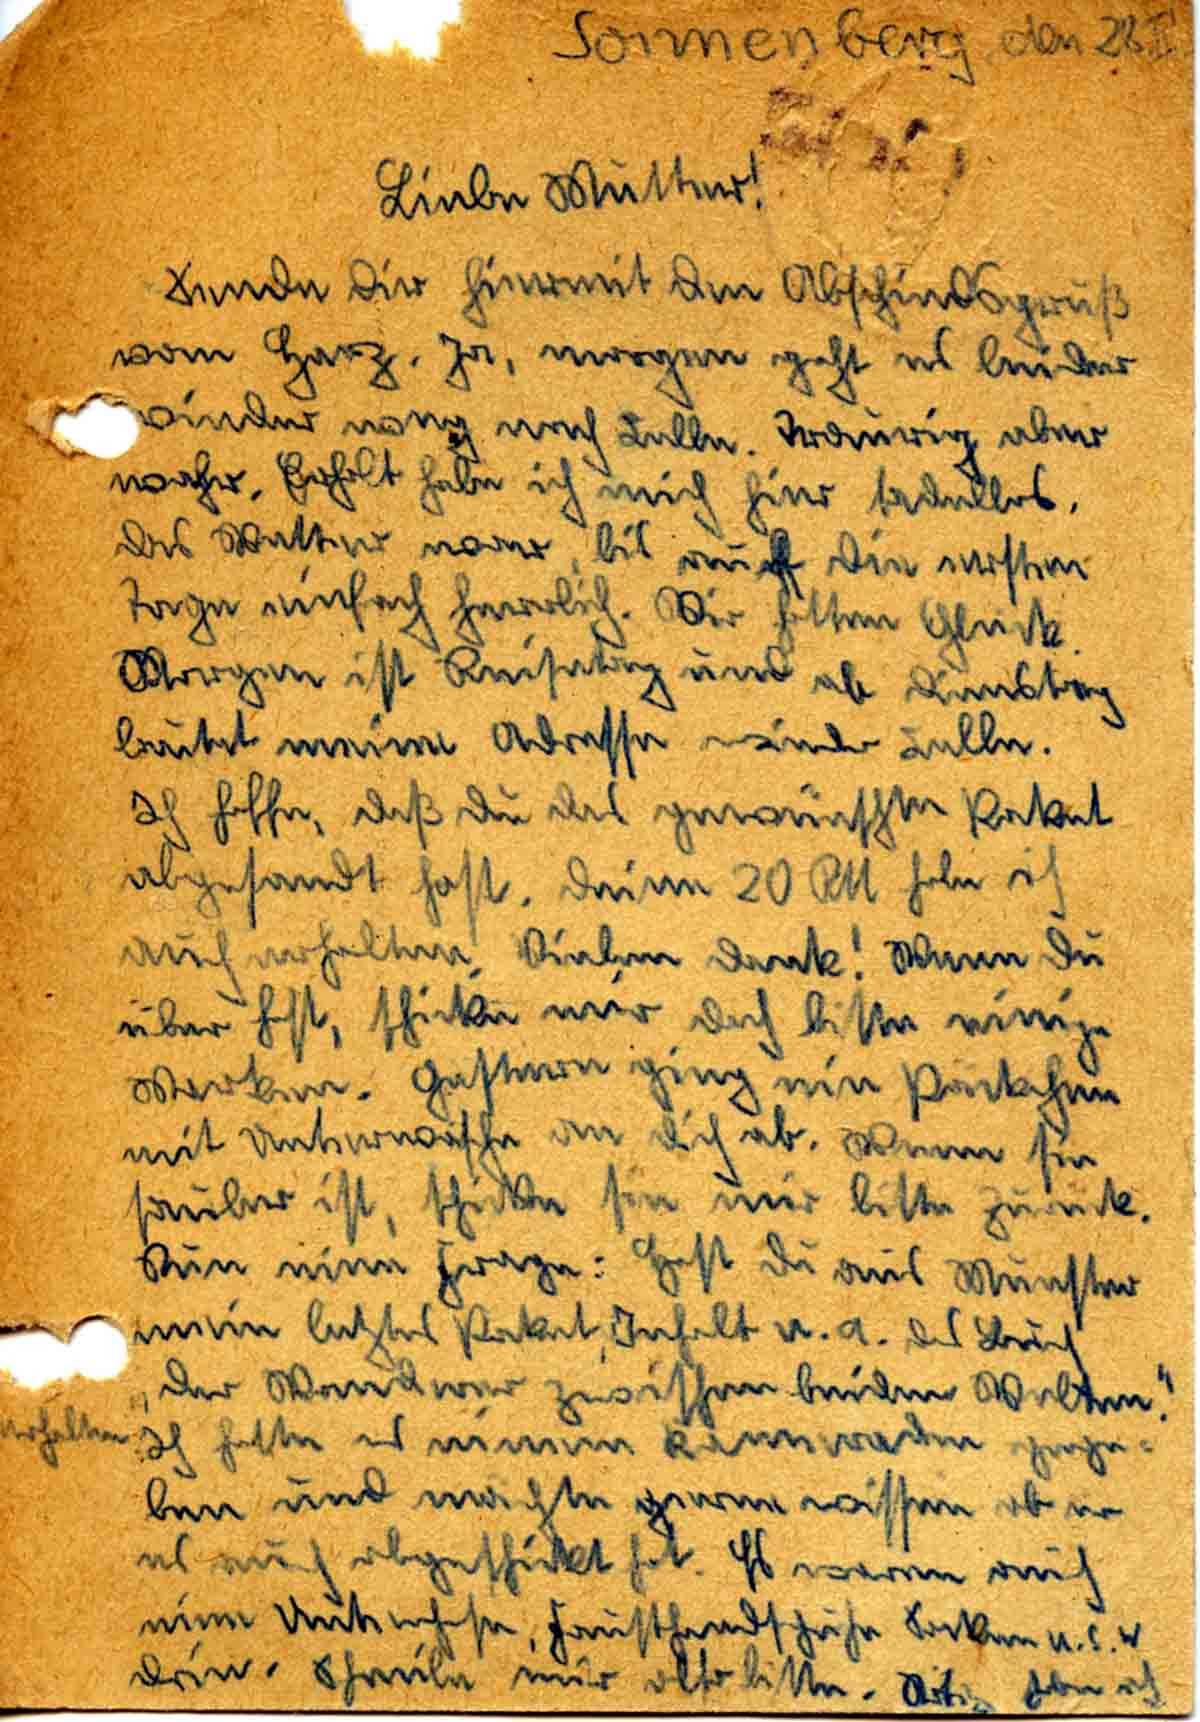 Sonnenberg, den 28. II.
Liebe Mutter!
Sende Dir hiermit den Abschiedsgruß
vom Harz. Ja, morgen geht es leider
wieder nach Celle. Traurig aber
wahr. Erholt habe ich mich hier tadellos.
Das Wetter war, bis auf die ersten
Tage einfach herrlich. Wir hatten Glück.
Morgen ist Reisetag und ab Dienstag
lautet meine Adresse wieder Celle.
Ich hoffe, daß du das gewünschte Paket
abgesandt hast. Deine 20 RM habe ich
auch erhalten. Vielen Dank! Wenn Du
über hast, schicke mir doch bitte einige
Marken. Gestern ging ein Päckchen
mit Unterwäsche an Dich ab. Wenn sie
sauber ist, schicke sie mir bitte zurück.
Nun eine Frage: Hast Du aus Munster
mein letztes Paket, Inhalt u. a. das Buch
"Der Wanderer zwischen beiden Welten"
erhalten. Ich hatte es einem Kameraden gege=
ben und möchte gerne wissen ob er
es auch abgeschickt hat. Es waren auch
eine Unterhose, Fausthandschuhe Socken u.s.w
drin. Schreibe mir bitte. habe ich